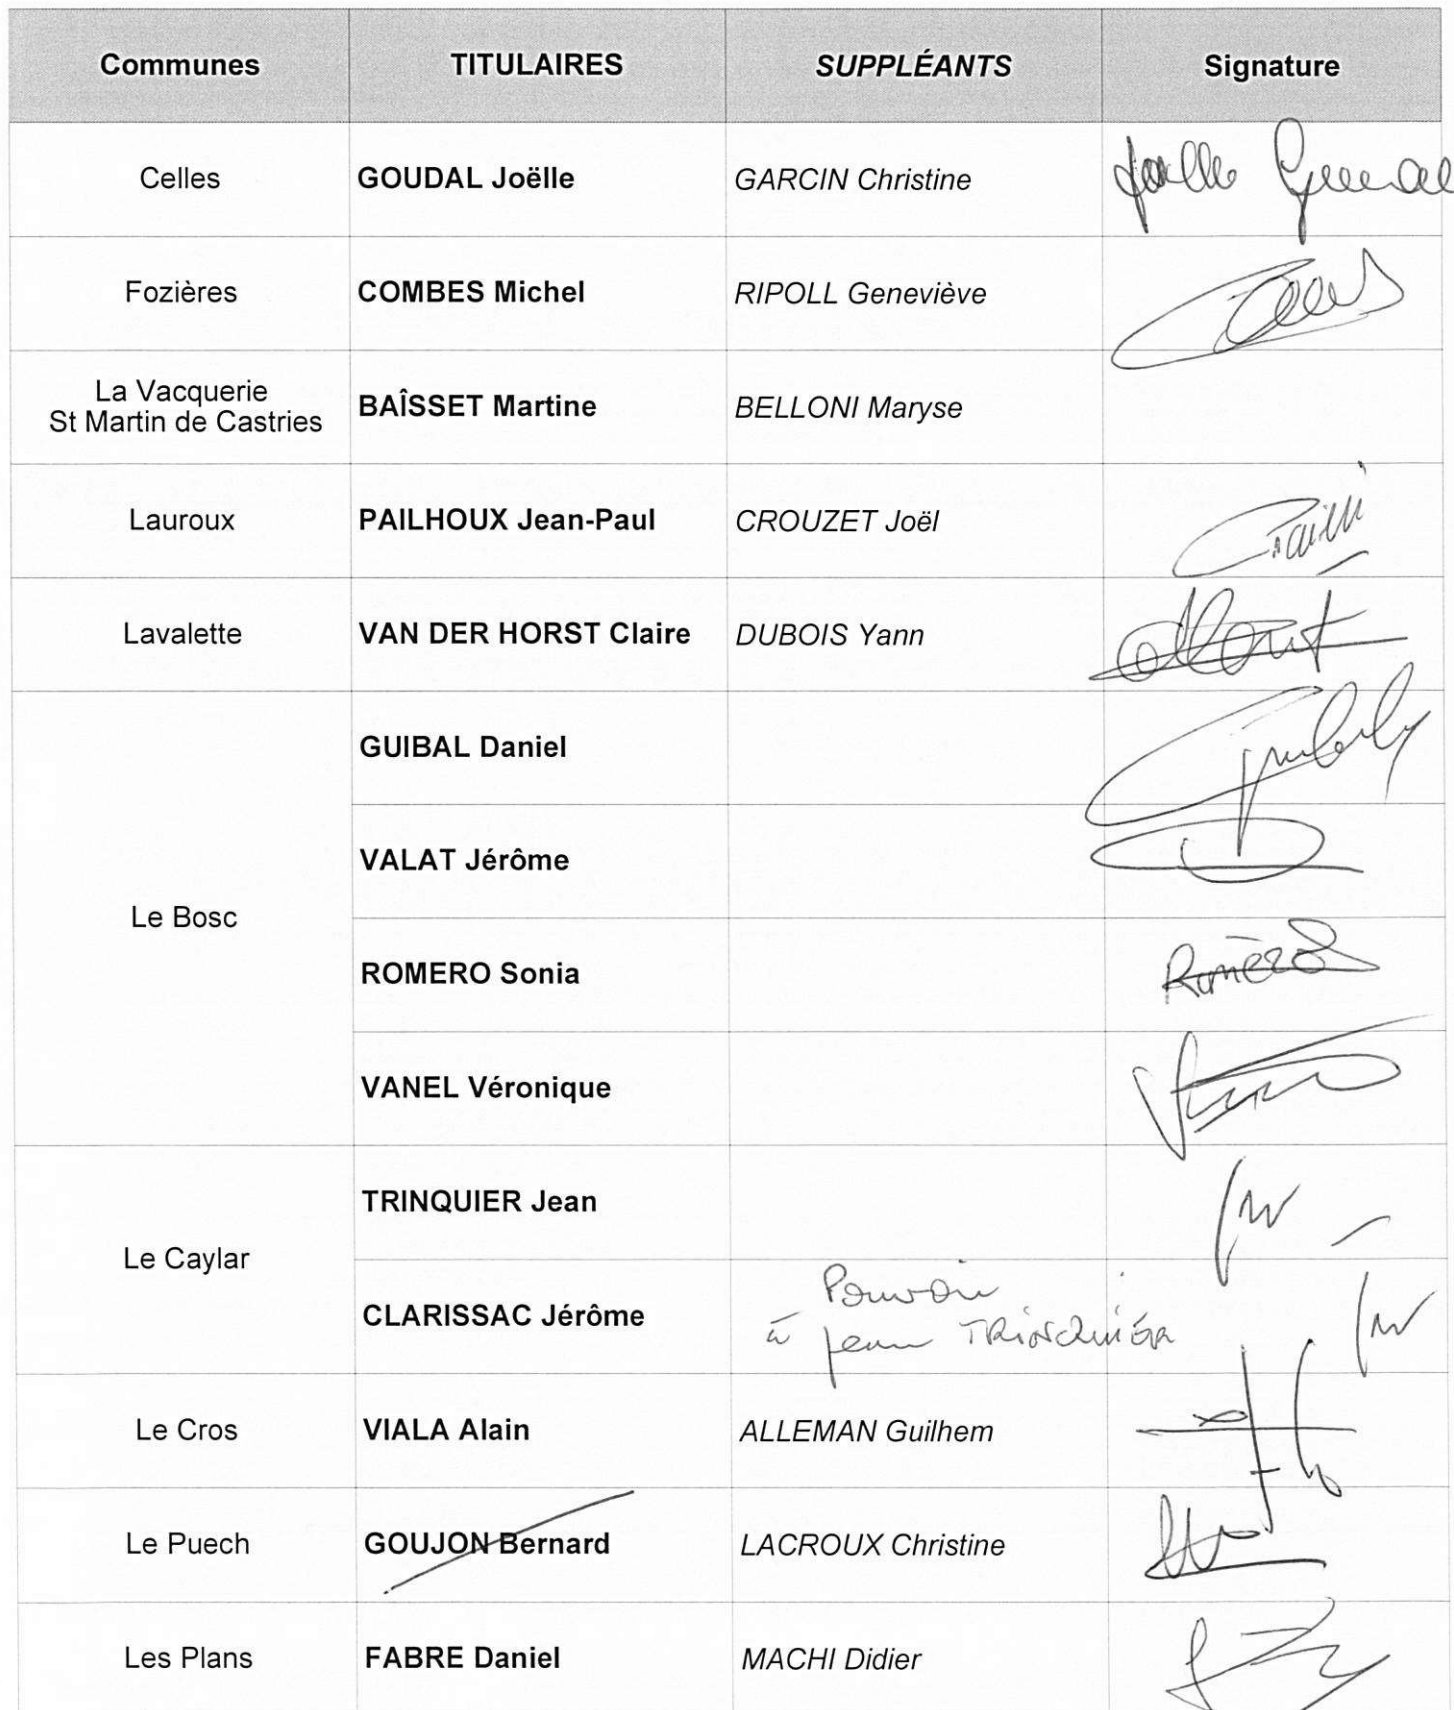 Communes TITULAIRES SUPPLÉANTS Signature
Celles GOUDAL Joëlle GARCIN Christine Joëlle Goudal
Fozières COMBES Michel RIPOLL Geneviève
La Vacquerie
St Martin de Castries BAÎSSET Martine BELLONI Maryse
Lauroux PAILHOUX Jean-Paul CROUZET Joël
Lavalette VAN DER HORST Claire DUBOIS Yann
Le Bosc
GUIBAL Daniel
VALAT Jérôme
ROMERO Sonia Romero
VANEL Véronique
Le Caylar
TRINQUIER Jean
CLARISSAC Jérôme
Pouvoir
à Jean TRINQUIER
Le Cros VIALA Alain ALLEMAN Guilhem
Le Puech GOUJON Bernard LACROUX Christine
Les Plans FABRE Daniel MACHI Didier